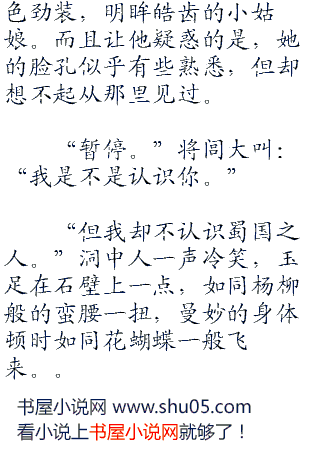 色劲装，明眸皓齿的小姑
娘。而且让他疑惑的是，她
的脸孔似乎有些熟悉，但却
想不起从那里见过。
“暂停。”将闾大叫：
“我是不是认识你。”
“但我却不认识蜀国之
人。”洞中人一声冷笑，玉
足在石壁上一点，如同杨柳
般的蛮腰一扭，曼妙的身体
顿时如同花蝴蝶一般飞
来。。
书屋小说网 www.shu05.com
看小说上书屋小说网就够了！